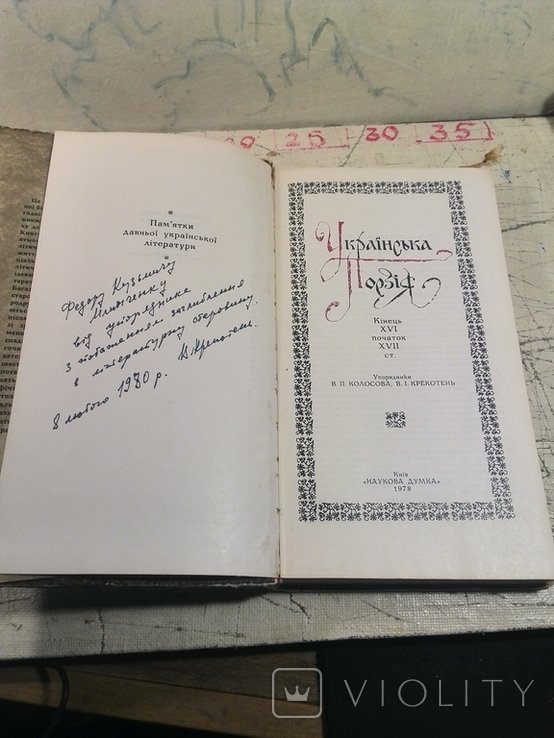 25 30 35
Пам'ятки
давньої української
літератури
Федору Кузьмичу
від упорядника
з побажанням заглиблення
в літературну старовину.
В. Крекотень.
8 лютого 1980 р.
Українська
Поезія
Кінець
XVI
початок
XVII
ст.
Упорядники
В. П. КОЛОСОВА, В. І. КРЕКОТЕНЬ
Київ
«НАУКОВА ДУМКА»
1978
VIOLITY